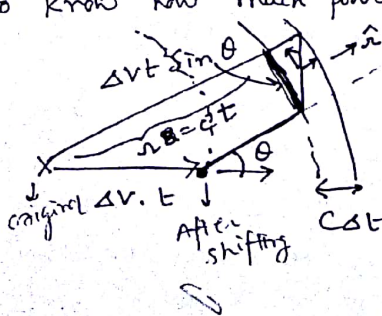 o know how much pow
Δvt Sin θ
r = ct
r̂
θ
origin Δv.t
After
shifting
CΔt